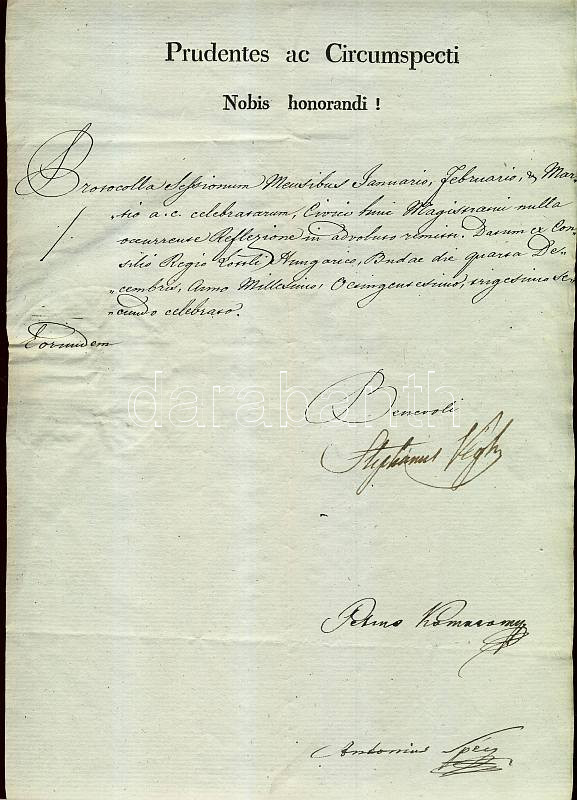 Prudentes ac Circumspecti
Nobis honorandi !
Protocolla Sessionum Mensibus Januario, Februario, & Mar-
"tio a. c. celebratarum, Civico huic Magistratui nulla
occurrente Reflexione in advoluto remissi. Datum ex Con-
silio Regio Locoli Hungarico, Budae die quarta De-
"cembris, Anno Millesimo, Octingentesimo, trigesimo se-
"cundo celebrato.
Eorundem
darabanth
Benevoli
Stephanus Vegh
Petrus Komaromy
Antonius